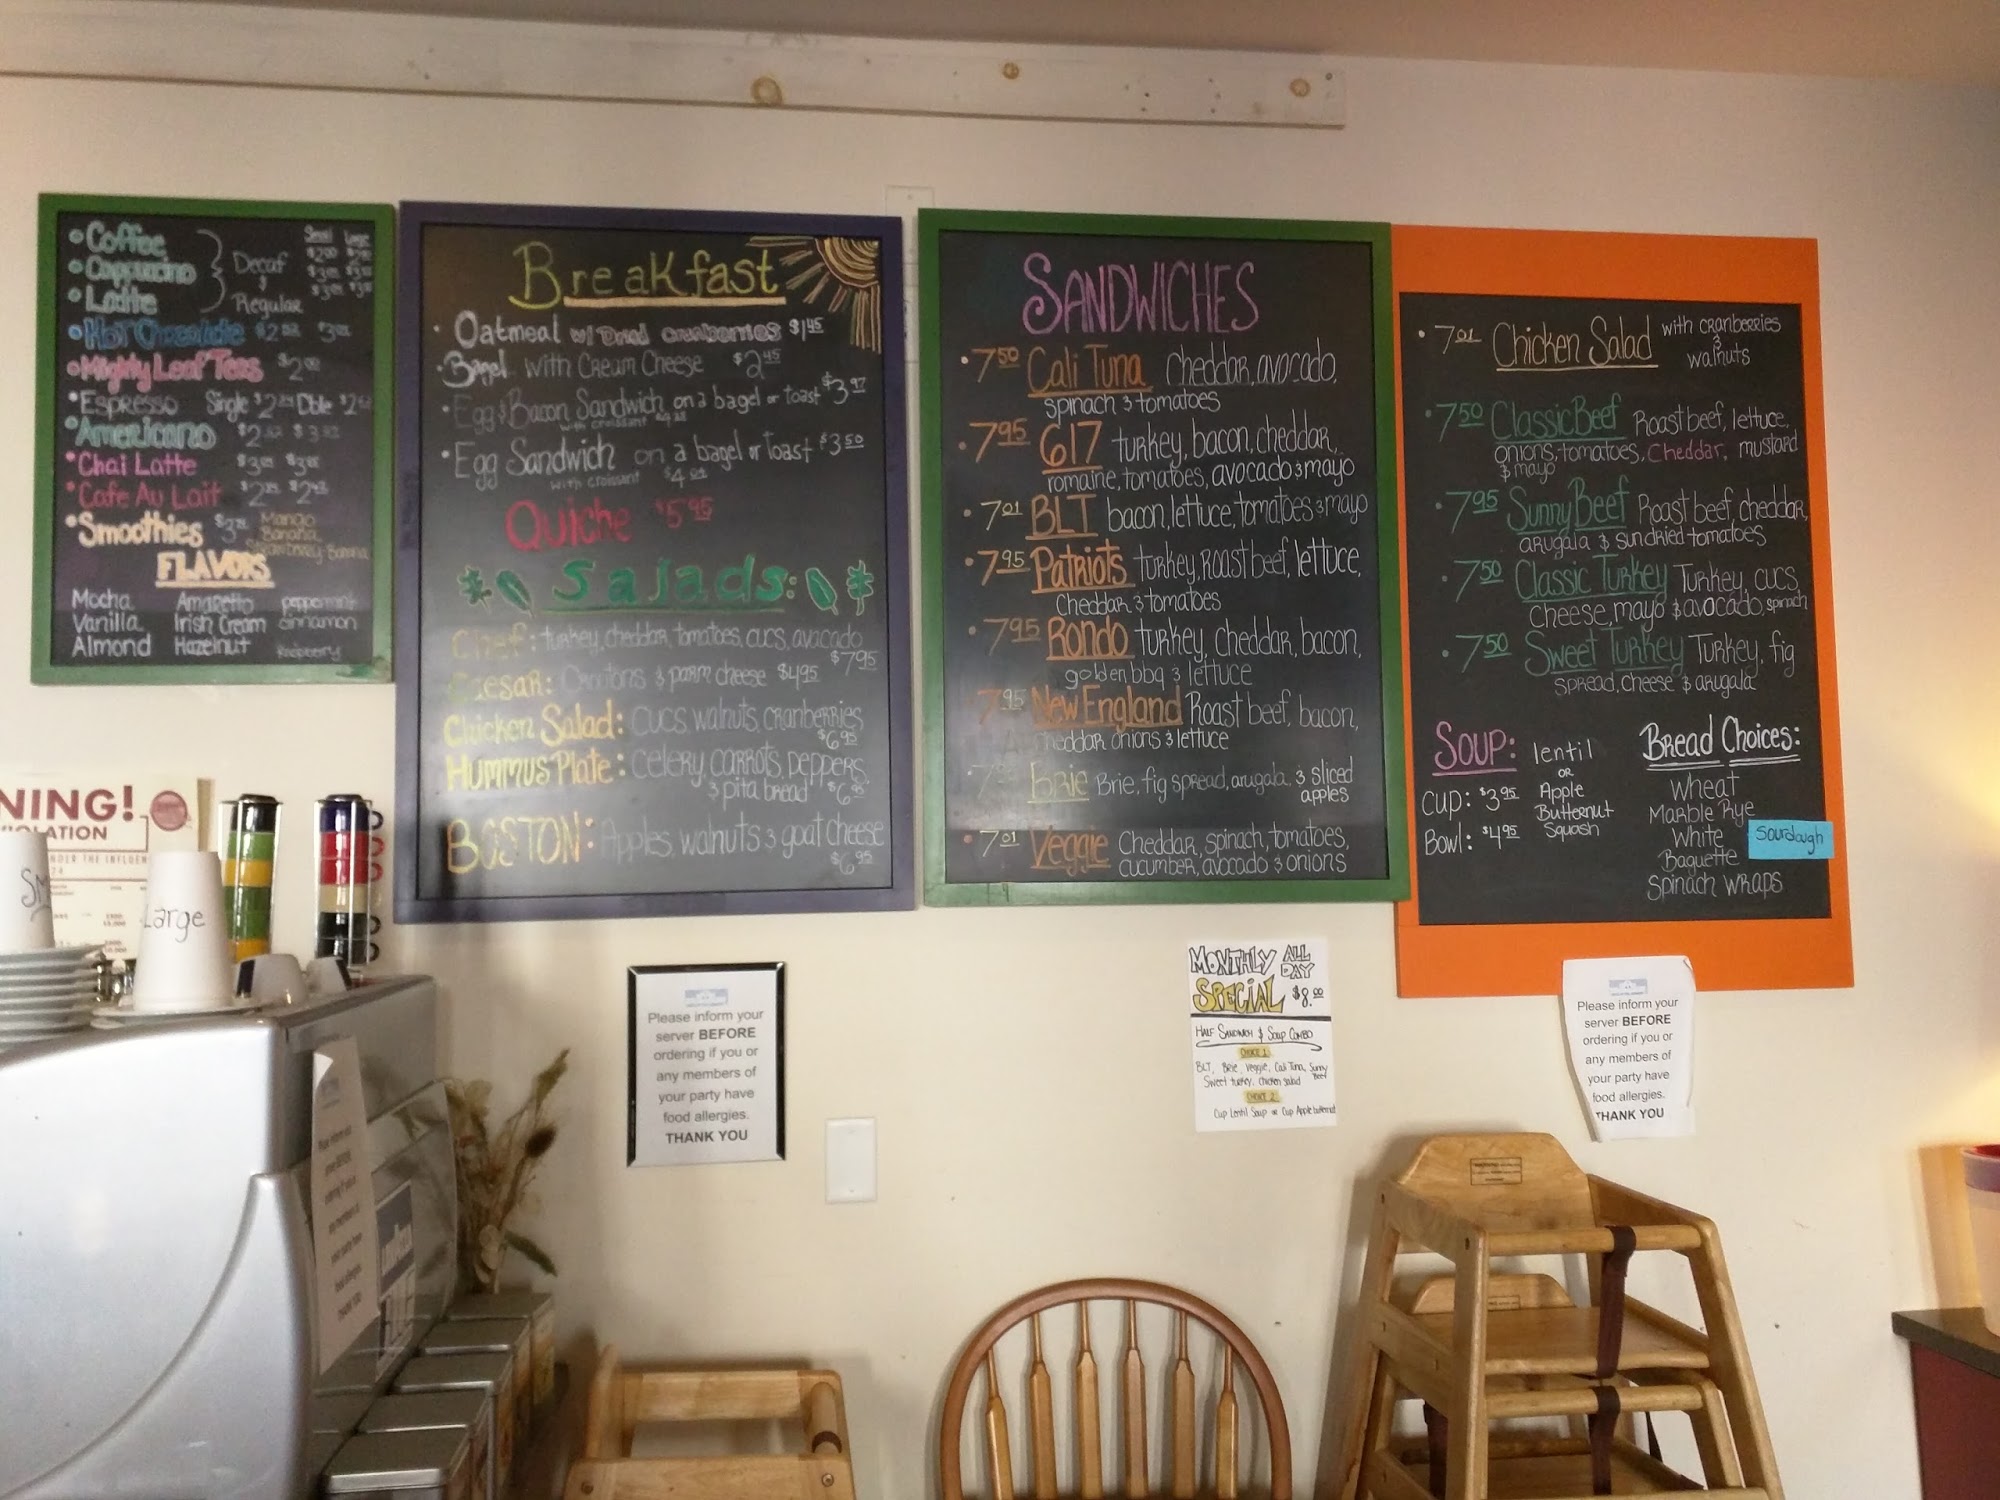 Coffee
Cappuccino
Latte
Decaf
&
Regular
Small Large
Hot Chocolate
Mighty Leaf Teas $2.00
Espresso Single Dble
Americano
Chai Latte
Cafe Au Lait
Smoothies
Mango
Banana
Strawberry-Banana
FLAVORS
Mocha Amaretto peppermint
Vanilla Irish Cream cinnamon
Almond Hazelnut Raspberry
Breakfast
Oatmeal w/ Dried cranberries $1.45
Bagel with Cream Cheese $2.45
Egg & Bacon Sandwich on a bagel or toast $3.97
with croissant
Egg Sandwich on a bagel or toast $3.50
with croissant $4.01
Quiche $5.95
Salads:
Chef: turkey, cheddar, tomatoes, cucs, avocado
$7.95
Caesar: Croutons & parm cheese $4.95
Chicken Salad: cucs, walnuts, cranberries
$6.95
Hummus Plate: celery, carrots, peppers
& pita bread $6.95
BOSTON: Apples, walnuts & goat cheese
$6.95
SANDWICHES
7.50 Cali Tuna cheddar, avocado,
spinach & tomatoes
7.95 617 turkey, bacon, cheddar,
romaine, tomatoes, avocado & mayo
7.01 BLT bacon, lettuce, tomatoes & mayo
7.95 Patriots turkey, Roast beef, lettuce,
Cheddar & tomatoes
7.95 Rondo turkey, cheddar, bacon,
golden bbq & lettuce
7.95 New England Roast beef, bacon,
cheddar onions & lettuce
Brie Brie, fig spread, arugala, & sliced
apples
7.01 Veggie Cheddar, spinach, tomatoes,
cucumber, avocado & onions
7.01 Chicken Salad with cranberries
&
walnuts
7.50 Classic Beef Roast beef, lettuce,
onions, tomatoes, Cheddar, mustard
& mayo
7.95 Sunny Beef Roast beef, cheddar,
arugala & sundried tomatoes
7.50 Classic Turkey Turkey, cucs,
Cheese, mayo & avocado, spinach
7.50 Sweet Turkey Turkey, fig
spread, cheese & arugala
SOUP: lentil
or
Apple
Butternut
Squash
Cup: $3.95
Bowl: $4.95
Bread Choices:
Wheat
Marble Rye
White
Sourdough
Baguette
Spinach Wraps
NING!
VIOLATION
Large
Please inform your
server BEFORE
ordering if you or
any members of
your party have
food allergies.
THANK YOU
MONTHLY ALL DAY
SPECIAL $8.00
HALF SANDWICH & SOUP COMBO
CHOICE 1
BLT, Brie, Veggie, Cali Tuna, Sunny Beef
Sweet turkey, chicken salad
CHOICE 2
Cup Lentil Soup or Cup Apple butternut
Please inform your
server BEFORE
ordering if you or
any members of
your party have
food allergies.
THANK YOU